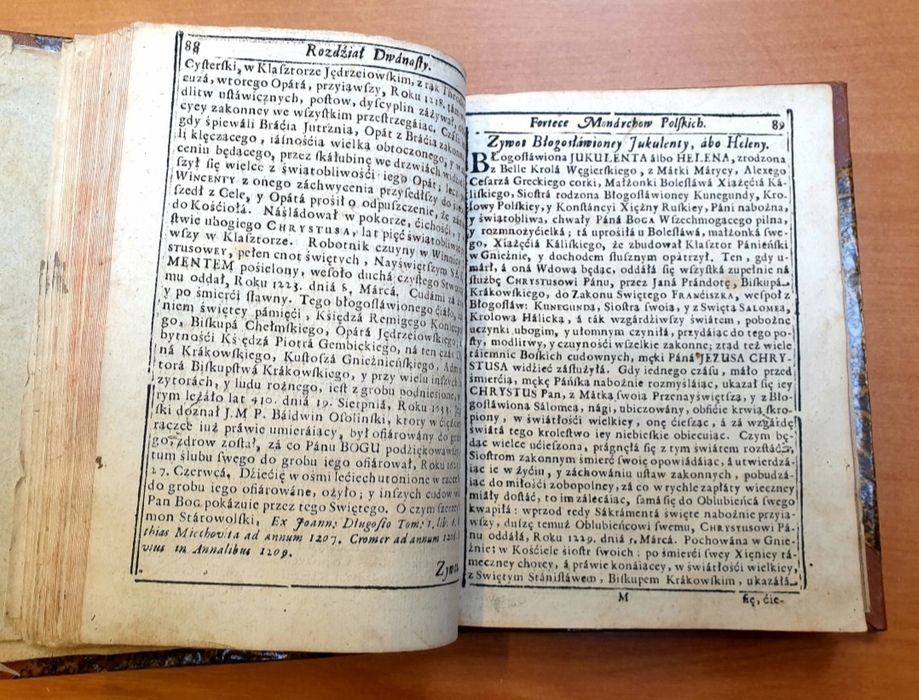 88 Rozdźiał Dwánasty.
Cysterski, w Klasztorze Jędrzeiowskim, z rąk Theo
cuzá, wtorego Opátá, przyiąwszy, Roku 1218. tám
dlitw ustáwicznych, postow, dyscyplin záżywał,
cyey zakonney we wszystkim przestrzegáiąc. Czásu
gdy śpiewáli Bráćia Jutrznią, Opát z Bráćią zakonn
li klęczącego, iásnośćia wielką obtoczonego, y w
ceniu będącego, przez skálubinę we drzwiách widźie
szył się wielce z świątobliwośći iego Opát;
WINCENTY z onego záchwycenia przyszedszy do
szedł z Cele, y Opátá prośił o odpuszczenie, że
do Kośćiołá. Náśládował w pokorze, ćichośći,
stwie ubogiego CHRYSTUSA, lat pięć świątobliwie
wszy w Klasztorze. Robotnik czuyny w Winnicy
stusowey, pełen cnot świętych, Nayświętszym SA
MENTEM posielony, wesoło duchá czystego Stwor
mu oddał, Roku 1223. dniá 8, Márcá. Cudámi zá
y po śmierći sławny. Tego błogosławionego ćiáło,
niem świętey pámięći, Kśiędzá Remigego Koniecp
go, Biskupá Chełmskiego, Opátá Jędrzeiowskiego,
bytnośći Kśędzá Piotrá Gembickiego, ná ten czás
ná Krákowskiego, Kustoszá Gnieźnieńskiego, Adm
torá Biskupstwá Krákowskiego, y przy wielu inszych
zytorách, y ludu rożnego, iest z grobu podnieśione,
rym leżáło lat 410. dniá 19. Sierpniá, Roku 1633.
ski doznał J.M P. Báldwin Ossoliński, ktory w ćięż
rączce iuż práwie umieráiący, był ofiárowány do gr
go, zdrow został, zá co Pánu BOGU podźiękowawszy
tum ślubu swego do grobu iego ofiárował, Roku 163
27. Czerwcá. Dźiećię w ośmi lećiech utonione w rzece
do grobu iego ofiárowáne, ożyło; y inszych cudow wi
Pan Bog pokázuie przez tego Swiętego. O czym szerzey
mon Stárowolski, Ex Joann: Długosso Tom: 1, lib. 6.
thias Miechovita ad annum 1207. Cromer ad annum 1206.
vius in Annalibus 1209.
Zywo
Fortece Monárchow Polskich. 89
Zywot Błogosłáwioney Jukulenty, ábo Heleny.
BŁogosłáwiona JUKULENTA álbo HELENA, zrodzona
z Belle Krolá Węgierskiego, z Mátki Máryey, Alexego
Cesárzá Greckiego corki, Małżonki Bolesłáwá Xiążęćiá Ká-
liskiego, Siostrá rodzona Błogosłáwioney Kunegundy, Kro-
lowy Polskiey, y Konstáncyi Xiężny Ruskiey, Páni nabożna,
y świątobliwa, chwały Páná BOGA Wszechmogącego pilna,
y rozmnożyćielká; tá uprośiłá u Bolesłáwá, małżonká swe-
go, Xiążęćiá Káliskiego, że zbudował Klasztor Pánieński
w Gnieźnie, y dochodem słusznym opátrzył. Ten, gdy u-
márł, á oná Wdową będąc, oddáłá się wszystká zupełnie ná
służbę CHRYSTUSOWI Pánu, przez Janá Prándotę, Biskupá
Krákowskiego, do Zakonu Swiętego FRANCISZKA, wespoł z
Błogosłáw: KUNEGUNDĄ, Siostrą swoią, y z Swiętą SALOMEĄ,
Krolową Hálicką, á ták wzgárdźiwszy świátem, pobożne
uczynki ubogim, y ułomnym czyniłá, przydáiąc do tego po-
sty, modlitwy, y czuynośći wszelkie zakonne; ztąd też wiele
táiemnic Boskich cudownych, męki Páná JEZUSA CHRY-
STUSA widźieć zásłużyłá. Gdy iednego czásu, máło przed
śmierćią, mękę Páńską nabożnie rozmyśláiąc, ukazał się iey
CHRYSTUS Pan, z Mátką swoią Przenayświętszą, y z Bło-
gosłáwioną Sálomeą, nági, ubiczowány, obfićie krwią skro-
piony, w świátłośći wielkiey, onę ćiesząc, á zá wzgárdę
świátá tego krolestwo iey niebieskie obiecuiąc. Czym bę-
dąc wielce ućieszona, prágnęłá się z tym świátem rozstáć,
Siostrom zakonnym śmierć swoię opowiádáiąc, á utwierdzá-
iąc ie w żyćiu, y záchowániu ustaw zakonnych, pobudzá-
iąc do miłośći zobopolney, zá co w rychle zapłáty wieczney
miáły dostáć, to im zálecáiąc, samá się do Oblubieńcá swego
kwápiłá: wprzod redy Sákrámentá święte nabożnie przyią-
wszy, duszę temuż Oblubieńcowi swemu, CHRYSTUSOWI Pá-
nu oddáłá, Roku 1229. dniá 5, Márcá. Pochowána w Gnie-
źnie; w Kośćiele śiostr swoich: po śmierći swey Xięnicy tá-
meczney chorey, á práwie konáiącey, w świátłośći wielkiey,
z Swiętym Stánisłáwem, Biskupem Krákowskim, ukazáłá
M się, ćie-